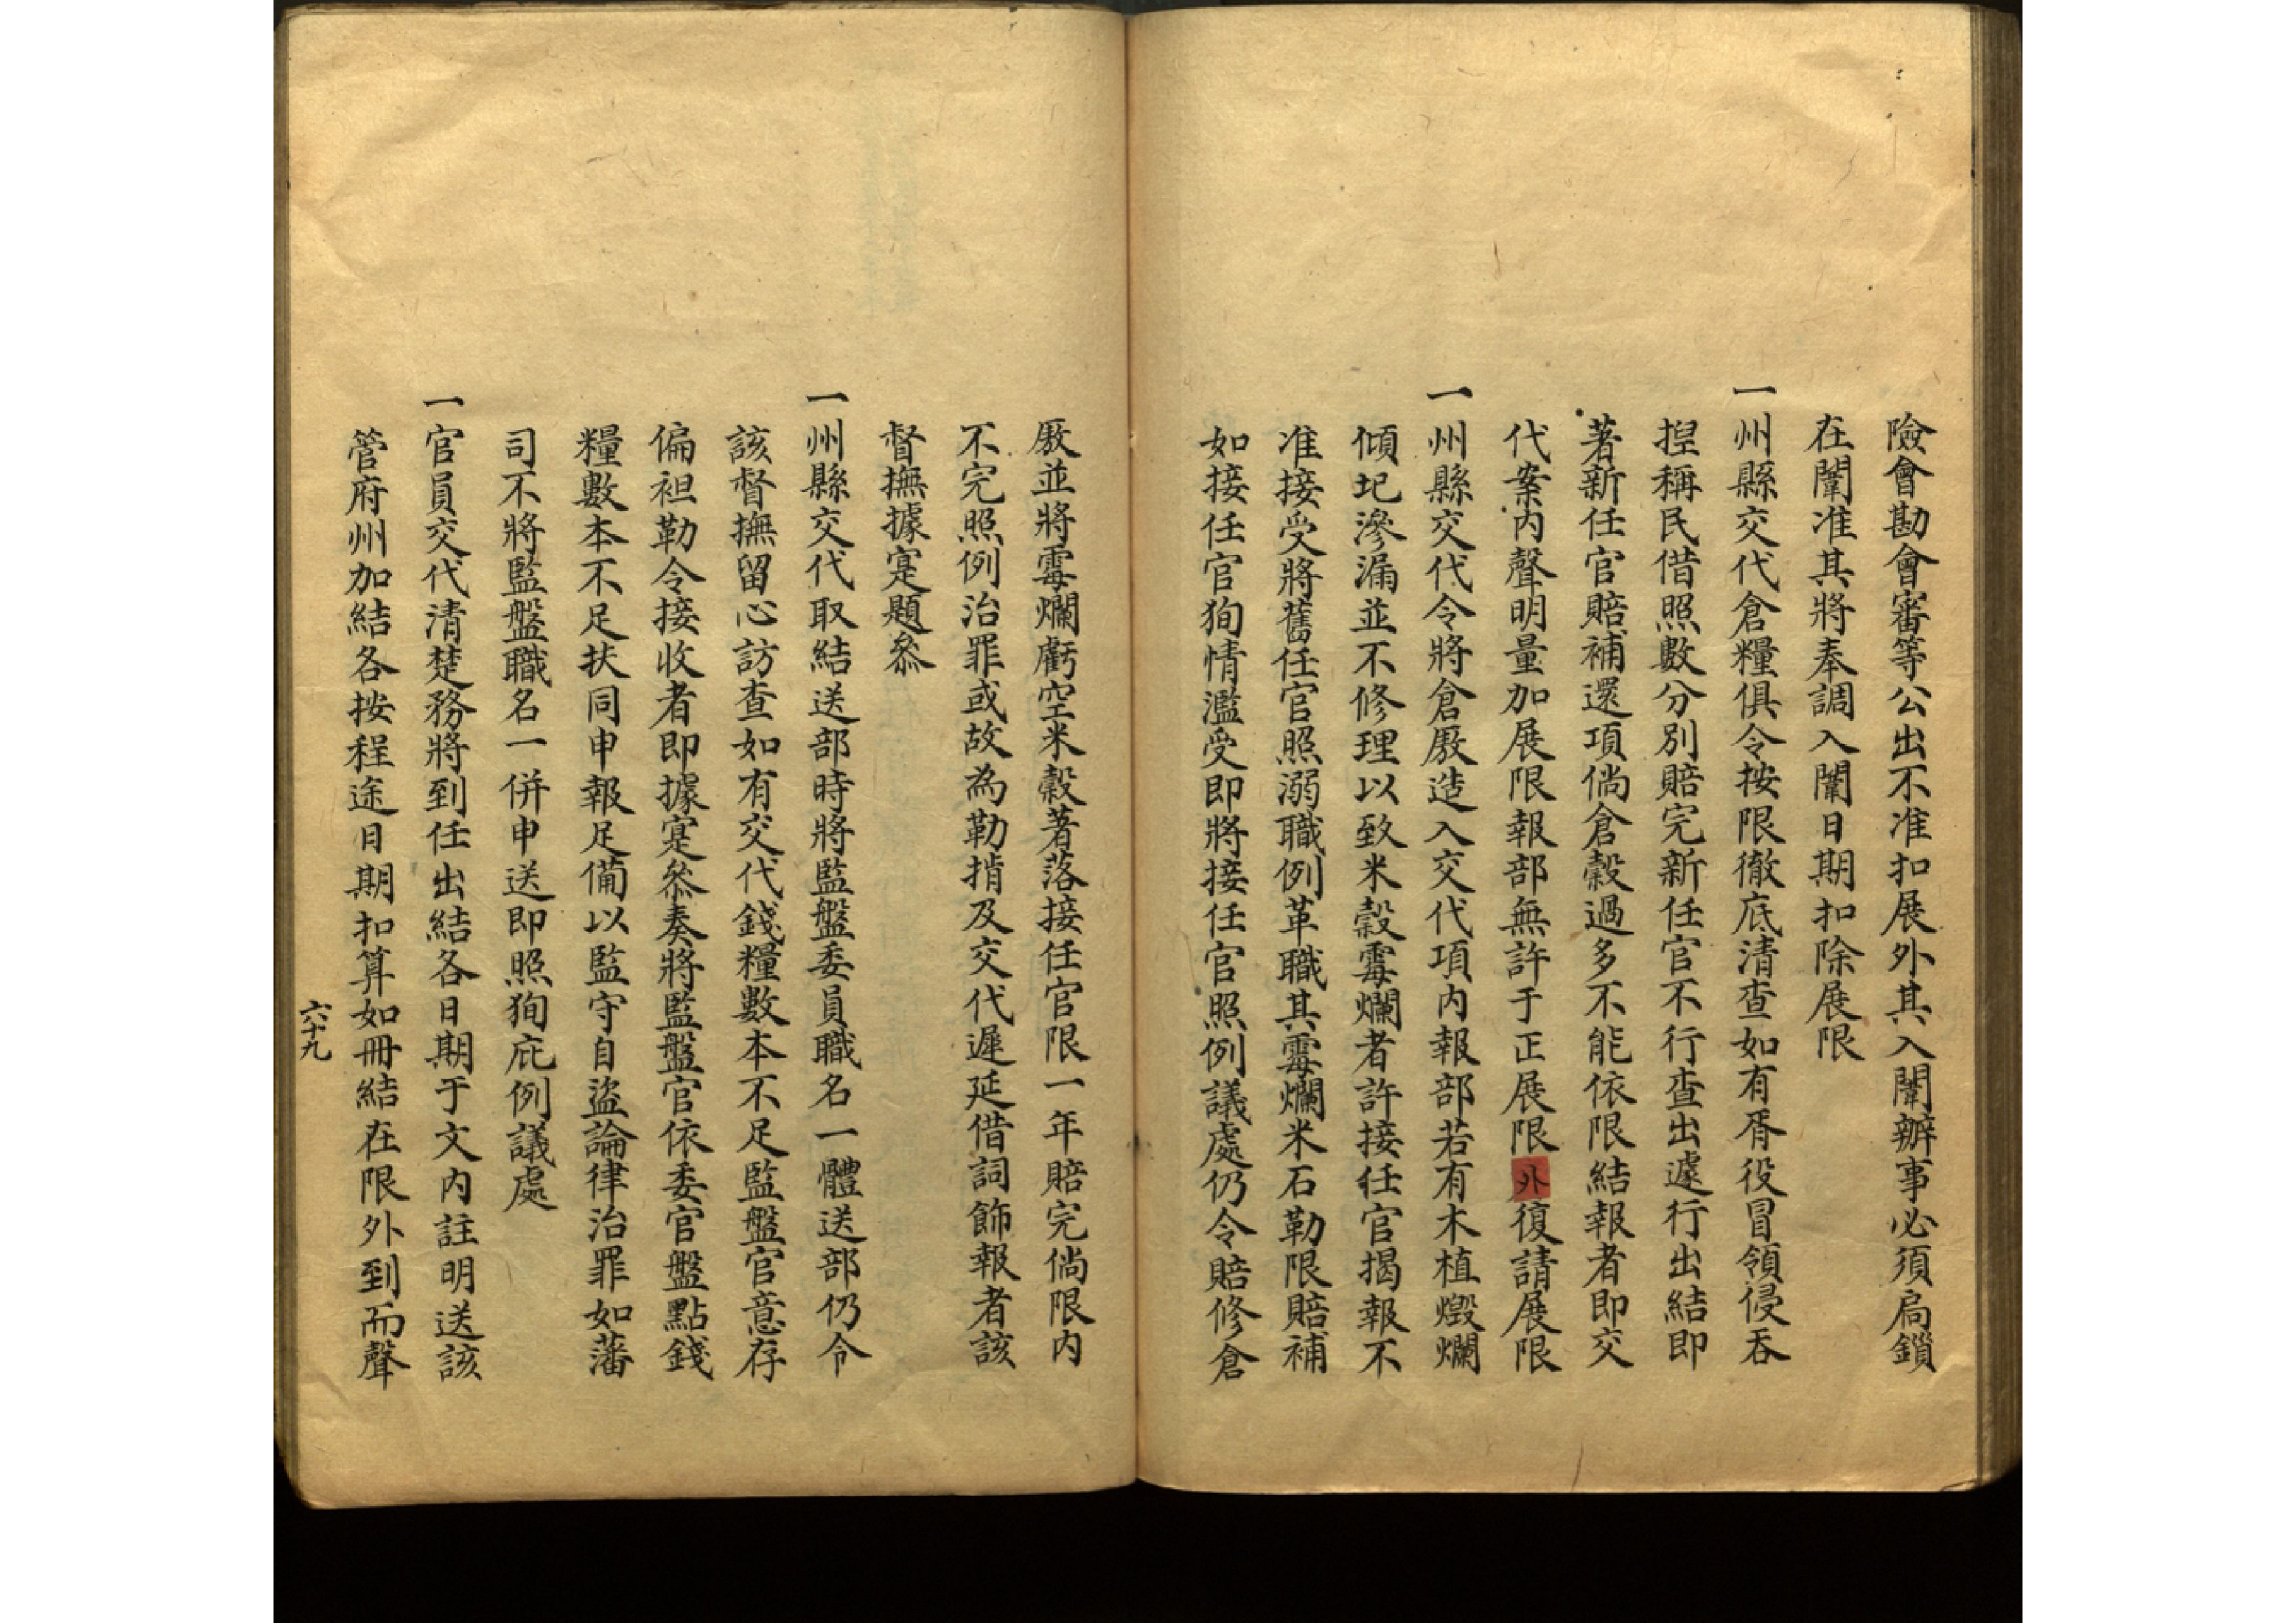 險會勘會審等公出不准扣展外其入闈辦事必須扃鎖
在闈准其將奉調入闈日期扣除展限
一州縣交代倉糧俱令按限徹底清查如有胥役冒領侵吞
揑稱民借照數分別賠完新任官不行查出遽行出結即
著新任官賠補還項倘倉穀過多不能依限結報者即交
代案內聲明量加展限報部無許于正展限外復請展限
一州縣交代令將倉厫造入交代項內報部若有木植燬爛
傾圮滲漏並不修理以致米穀霉爛者許接任官揭報不
准接受將舊任官照溺職例革職其霉爛米石勒限賠補
如接任官狥情濫受即將接任官照例議處仍令賠修倉
厫並將霉爛虧空米穀著落接任官限一年賠完倘限內
不完照例治罪或故為勒掯及交代遲延借詞飾報者該
督撫據寔題叅
一州縣交代取結送部時將監盤委員職名一體送部仍令
該督撫留心訪查如有交代錢糧數本不足監盤官意存
偏袒勒令接收者即據寔叅奏將監盤官依委官盤點錢
糧數本不足扶同申報足備以監守自盜論律治罪如藩
司不將監盤職名一併申送即照狥庇例議處
一官員交代清楚務將到任出結各日期于文內註明送該
管府州加結各按程途日期扣算如冊結在限外到而聲
六十九